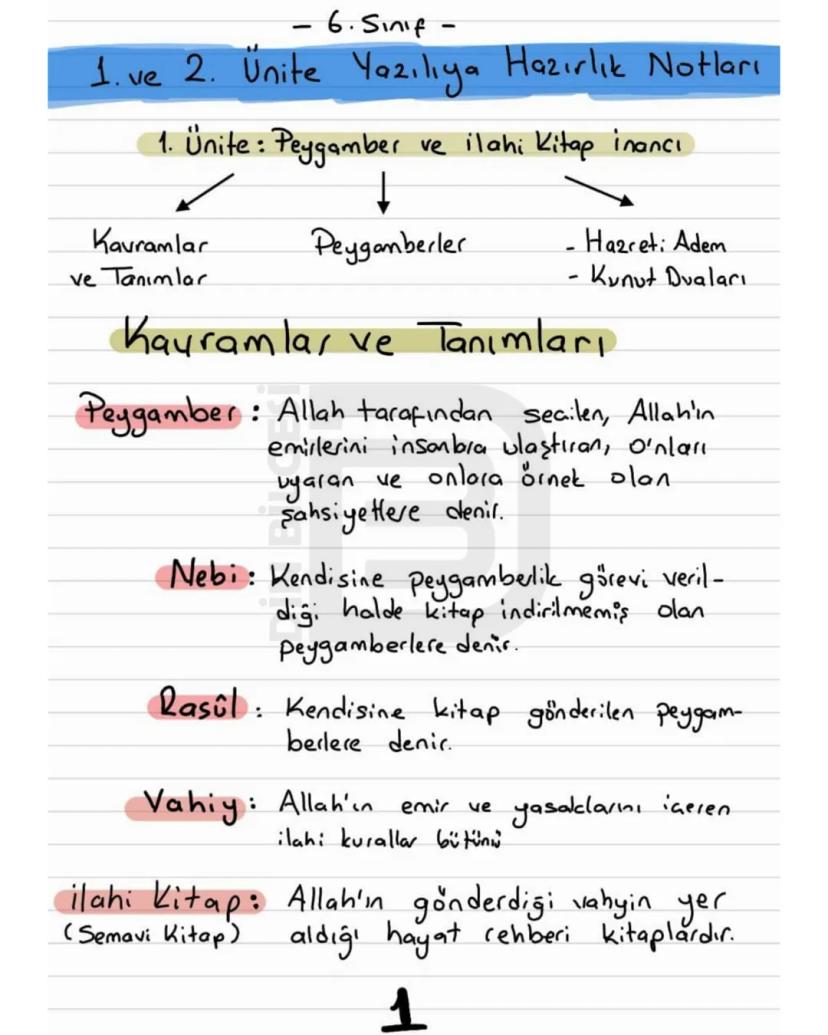 - 6. Sınıf -
1. ve 2. Ünite Yazılıya Hazırlık Notları
1. Ünite: Peygamber ve ilahi Kitap inancı
Kavramlar
ve Tanımlar
Peygamberler
- Hazreti Adem
- Kunut Duaları
Kavramlar ve Tanımları
Peygamber: Allah tarafından seçilen, Allah'ın
emirlerini insanlara ulaştıran, O'nları
uyaran ve onlara örnek olan
şahsiyetlere denir.
Nebi: Kendisine peygamberlik görevi veril-
diği halde kitap indirilmemiş olan
peygamberlere denir.
Rasûl: Kendisine kitap gönderilen peygam-
berlere denir.
Vahiy: Allah'ın emir ve yasaklarını içeren
ilahi kurallar bütünü
ilahi Kitap: Allah'ın gönderdiği vahyin yer
(Semavi Kitap) aldığı hayat rehberi kitaplardır.
DİN BİLGESİ
1